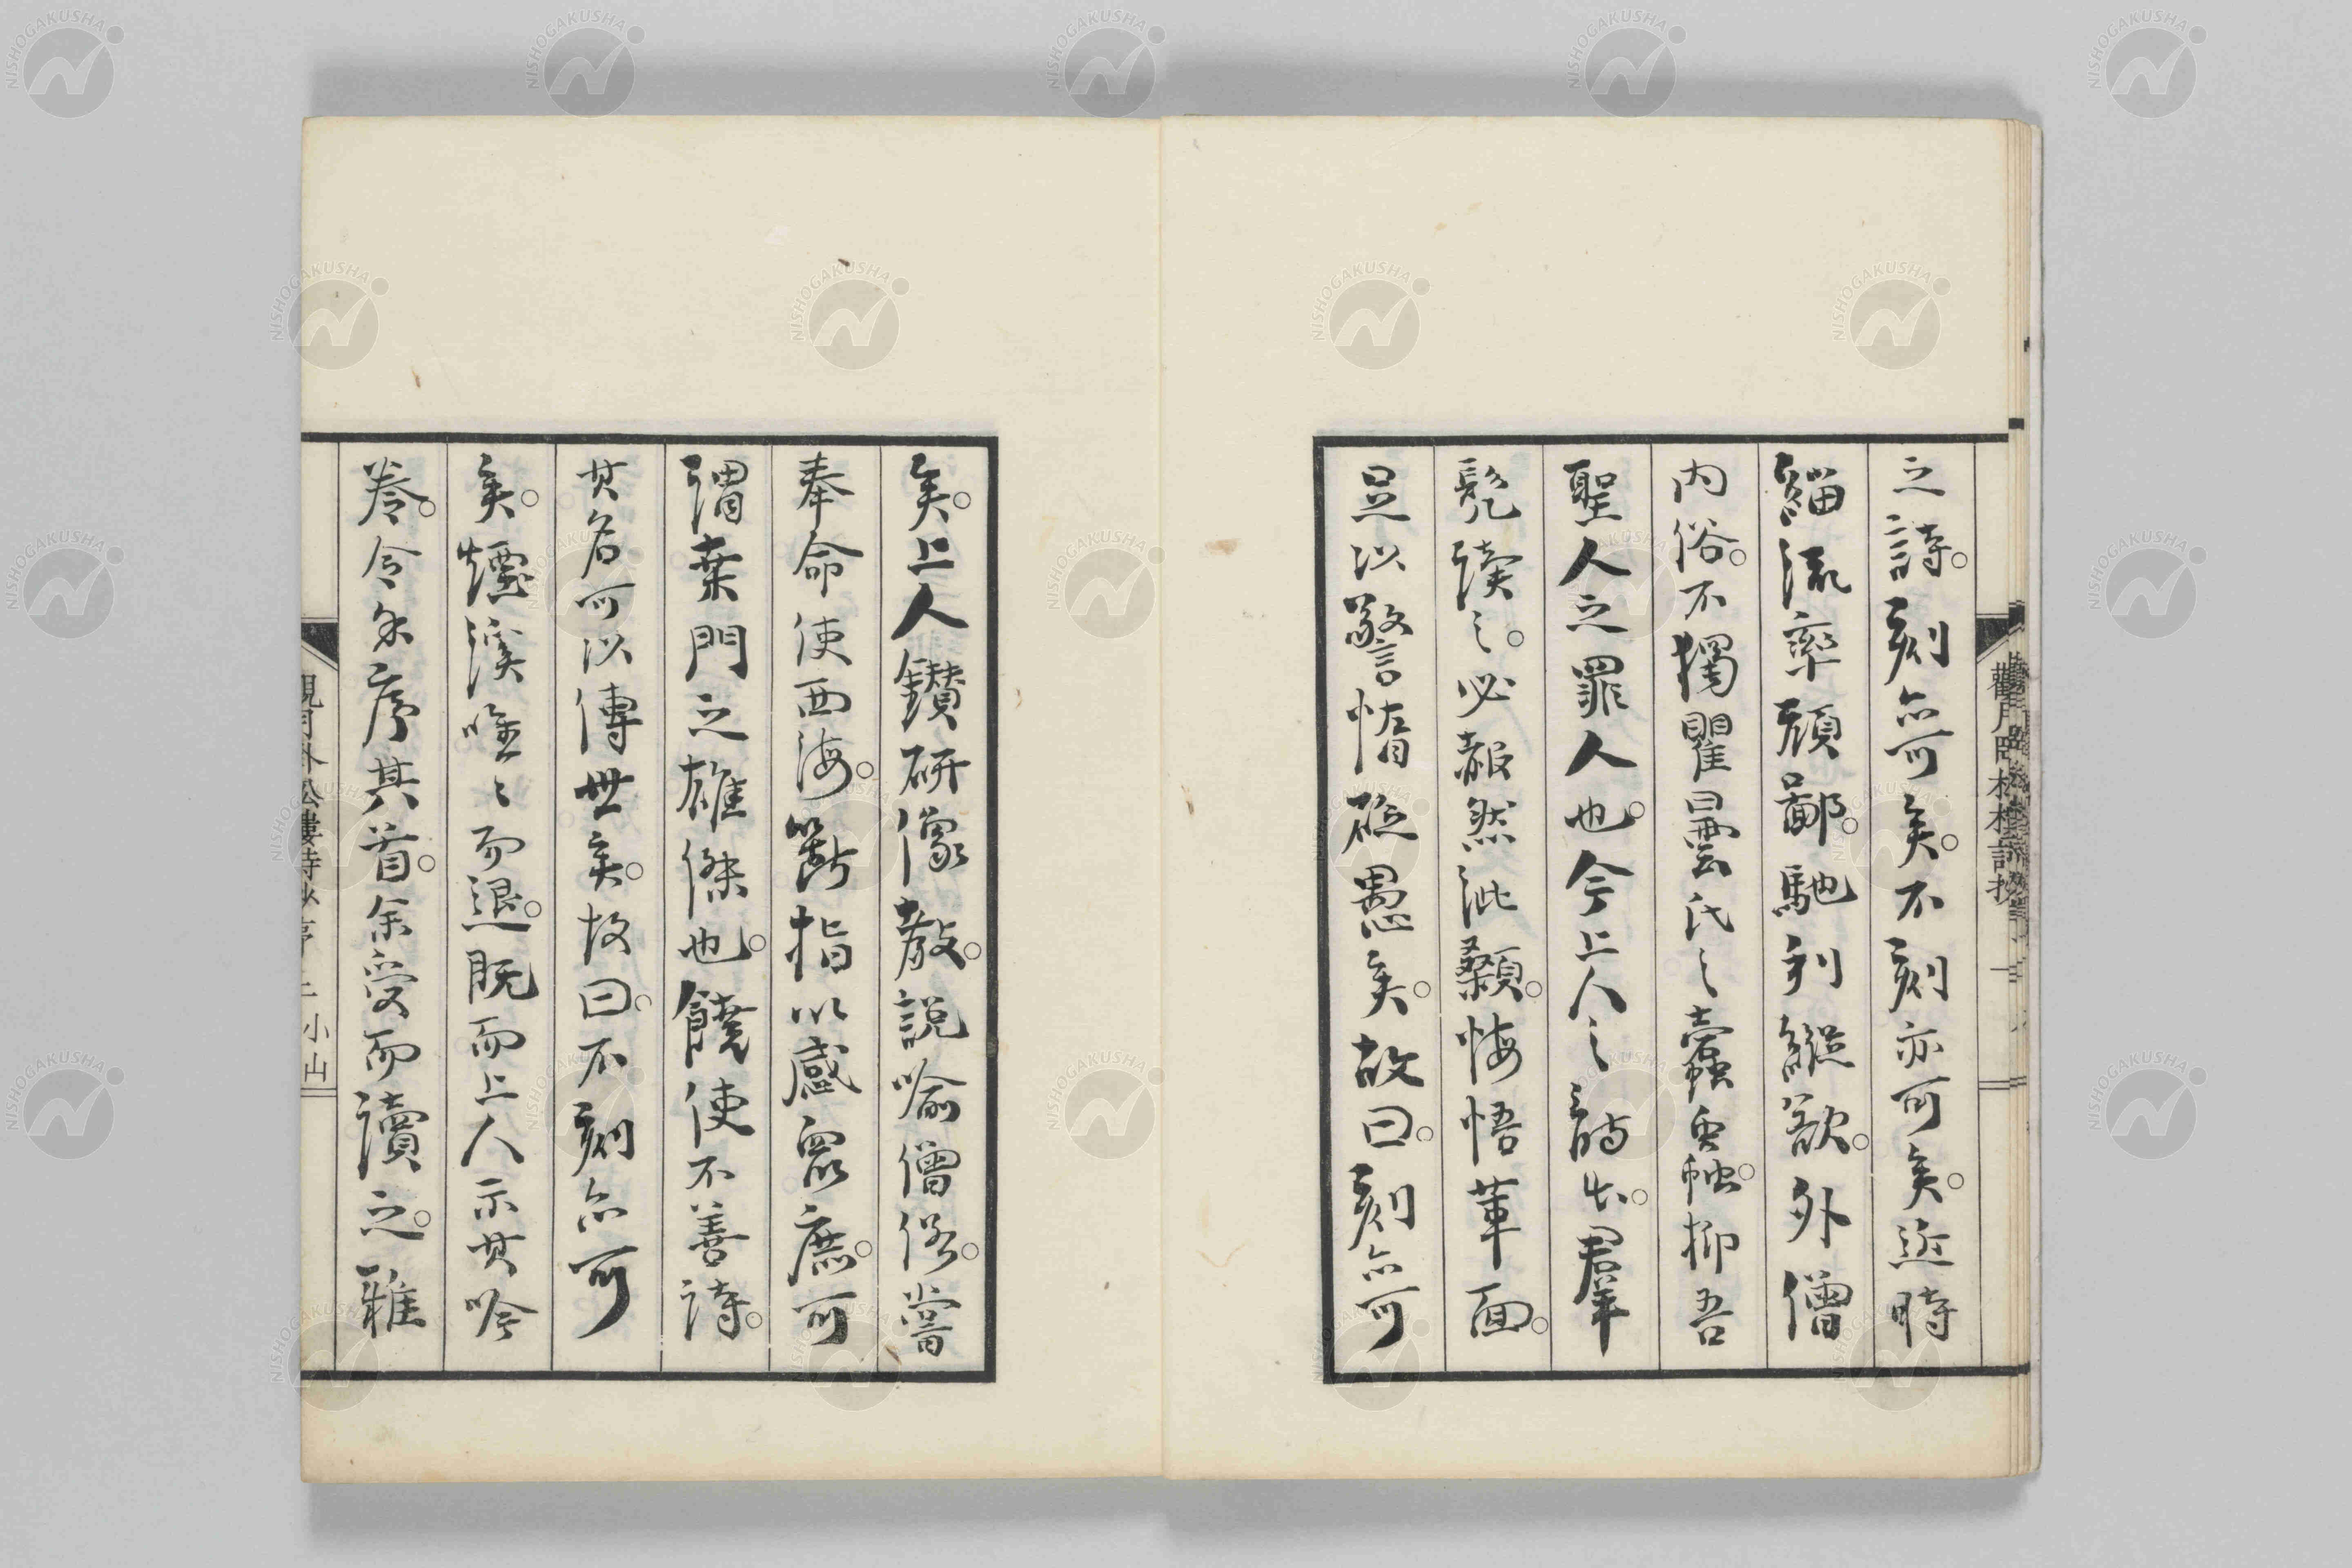 之詩。刻亦可矣。不刻亦可矣。近時
緇流率頑鄙。馳利縦欲。外僧
内俗。不獨瞿曇氏之蠹蝕抑吾
聖人之罪人也。今上人之詩出。羣
髡讀之。必赧然泚顙。悔悟革面。
足以警惰砭愚矣。故曰。刻亦可
矣。上人鑽研像教。説喩僧俗。嘗
奉命使西海。斷指以感衆庶。可
謂桑門之雄傑也。饒使不善詩。
其名可以傳世矣。故曰。不刻亦可
矣。煙溪唯之而退。既而上人示其吟
卷。令余序其首。余受而讀之。雖
小山
NISHOGAKUSHA